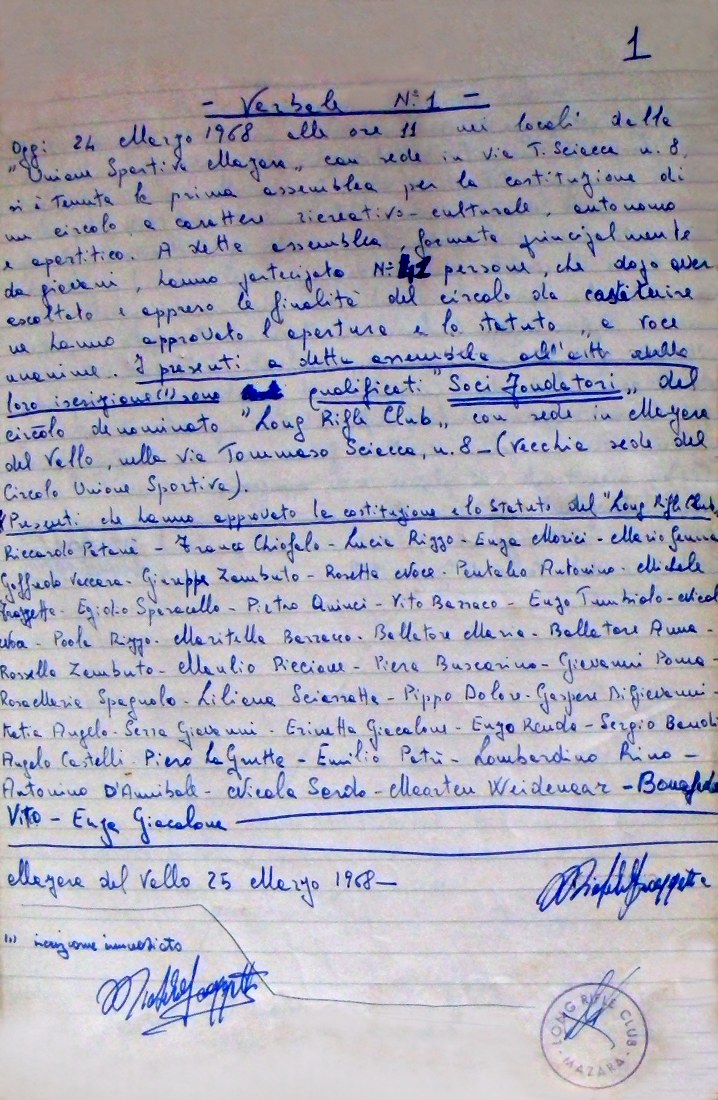 1
- Verbale N° 1 -
Oggi 24 Marzo 1968 alle ore 11 nei locali della
"Unione Sportiva Mazara" con sede in via T. Sciacca n. 8,
si è tenuta la prima assemblea per la costituzione di
un circolo a carattere ricreativo-culturale, autonomo
e apartitico. A detta assemblea, formata principalmente
da giovani, hanno partecipato N° 42 persone, che dopo aver
ascoltato e appreso le finalità del circolo da costituire
ne hanno approvato l'apertura e lo statuto, a voce
unanime. I presenti a detta assemblea all'atto della
loro iscrizione (1) sono qualificati "Soci Fondatori" del
circolo denominato "Long Rifle Club" con sede in Mazara
del Vallo, nella via Tommaso Sciacca, n. 8 - (vecchia sede del
Circolo Unione Sportiva).
Presenti che hanno approvato la costituzione e lo statuto del "Long Rifle Club"
Riccardo Patanè - Franco Chiofalo - Lucia Rizzo - Enza Morici - Mario
Goffredo Vaccara - Giuseppe Zambuto - Rosetta Noce - Pantaleo Antonino - Michele
Egidio Sparacello - Pietro Quinci - Vito Barraco - Enzo Tumbiolo - Nicola
Paola Rizzo - Maritella Barraco - Ballatore Maria - Ballatore Anna -
Rossella Zambuto - Manlio Piccione - Piera Buscarino - Giovanni Poma -
Rosa Maria Spagnolo - Liliana Sciarratta - Pippo Dolor - Gaspare Di Giovanni -
Katia Angelo - Serra Giovanni - Erinetta Giacalone - Enzo Renda - Sergio
Angelo Castelli - Piero La Grutta - Emilio Petrì - Lombardino Rino -
Antonino D'Annibale - Nicola Sardo - Maarten Weidenaar - Bonafede
Vito - Enza Giacalone
Mazara del Vallo 25 Marzo 1968 -
(1) iscrizione immediata
LONG RIFLE CLUB
MAZARA